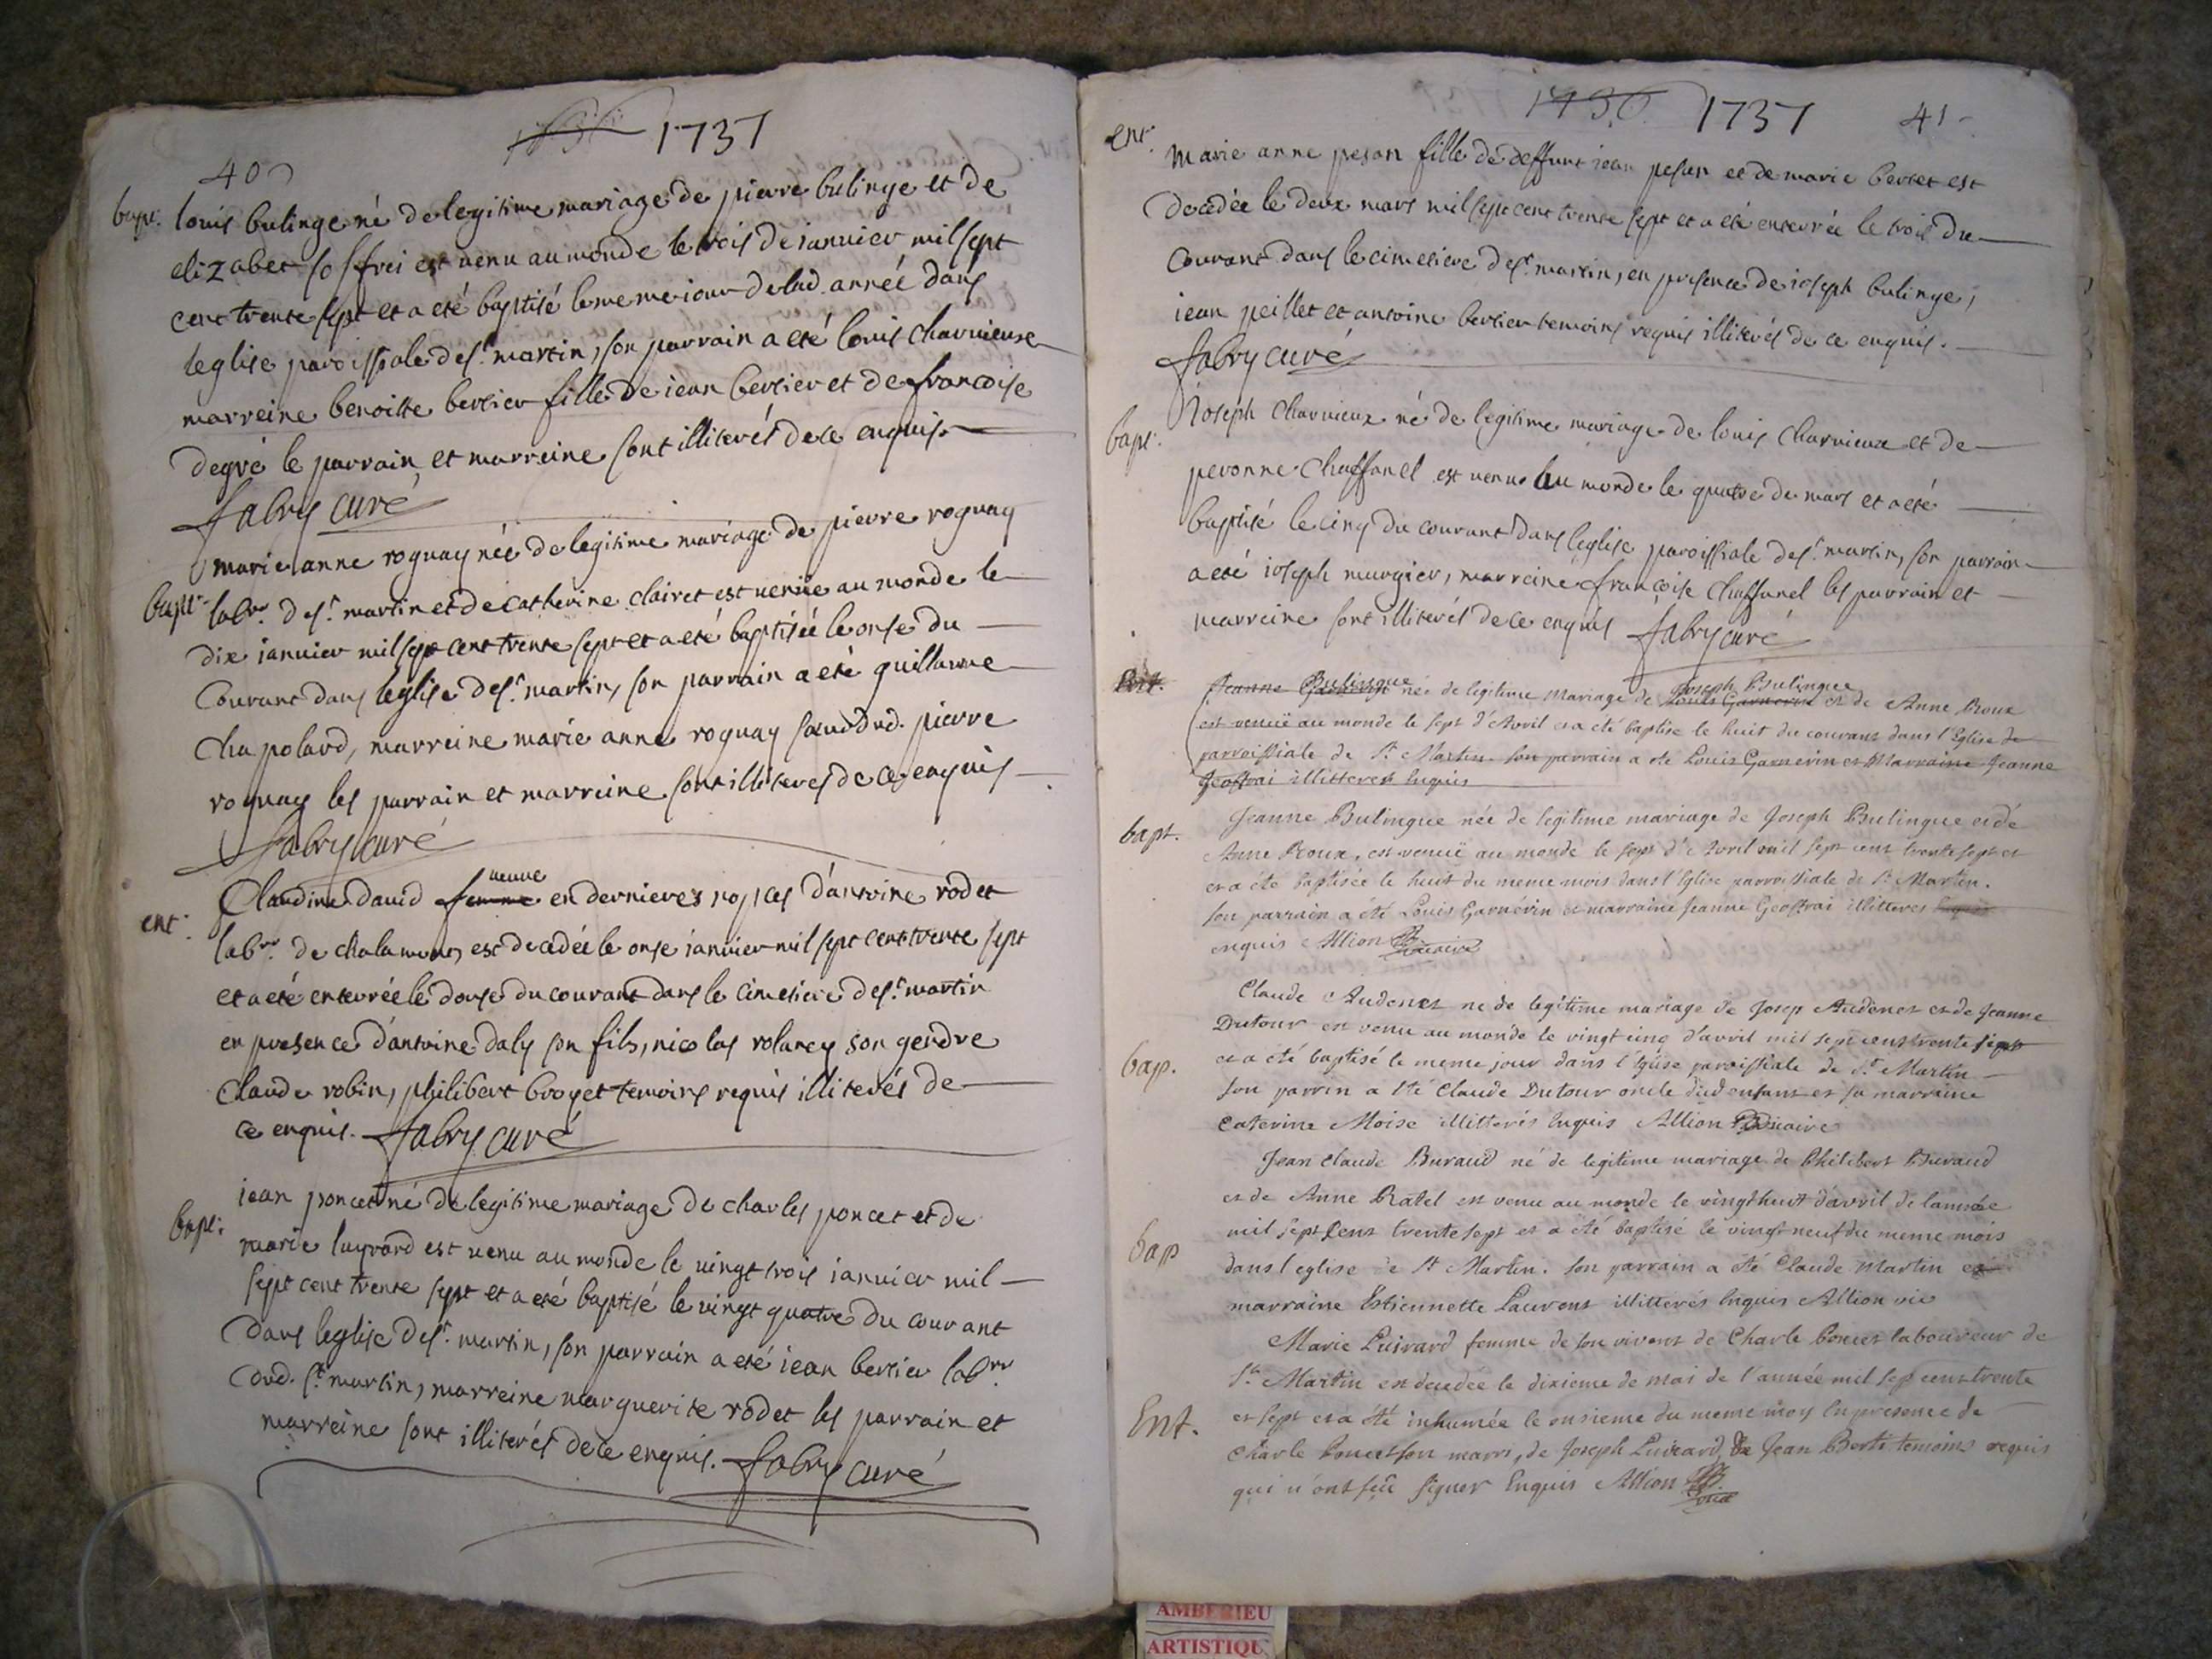 1736 1737
40
bapt. louis bulinge né de legitime mariage de pierre bulinge et de
elizabet joffrei est venu au monde le trois de ianvier mil sept
cent trente sept et a eté baptisé le meme iour de lad. année dans
leglise paroissiale de st. martin, son parrain a eté louis charvieux
marreine benoitte bertier fille de iean bertier et de francoise
degré le parrain et marreine sont illiterés de ce enquis
fabry curé
marie anne roguay née de legitime mariage de pierre roguay
bapt. labr. de st. martin et de catherine clairet est venüe au monde le
dix ianvier mil sept cent trente sept et a eté baptisée le onse du
courant dans leglise de st. martin, son parrain a eté guillaume
chapolard, marreine marie anne roguay dud. pierre
roguay les parrain et marreine sont illiterés de ce enquis
fabry curé
veuve
Claudine david femme en dernieres nopces d'antoine rodet
ent. labr. de chalamont, est decedée le onse ianvier mil sept cent trente sept
et a eté enterrée le douse du courant dans le cimetiere de st. martin
en presence d'antoine daly son fils, nicolas volarcy son gendre
claude robin, philibert broyet temoins requis illiterés de
ce enquis. fabry curé
bapt. iean poncet né de legitime mariage de charles poncet et de
marie luyrard est venu au monde le vingt trois ianvier mil
sept cent trente sept et a eté baptisé le vingt quatre du courant
dans leglise de st. martin, son parrain a eté iean bertier labr.
dud. st. martin, marreine marguerite rodet les parrain et
marreine sont illiterés de ce enquis. fabry curé
1736 1737 41
ent. Marie anne pesan fille de deffunt iean pesan et de marie bertet est
decedée le deux mars mil sept cent trente sept et a eté enterrée le trois du
courant dans le cimetiere de st. martin, en presence de ioseph bulinge,
iean peillet et antoine bertier temoins requis illiterés de ce enquis.
fabry curé
bapt. Ioseph charvieux né de legitime mariage de louis charvieux et de
peronne chaffanel est venu au monde le quatre de mars et a eté
baptisé le cinq du courant dans leglise paroissiale de st. martin, son parrain
a eté ioseph murgier, marreine françoise chaffanel les parrain et
marreine sont illiterés de ce enquis fabry curé
Bulingue Joseph Bulingue
Jeanne née de legitime mariage de Louis Garnerin et de Anne Roux
est venuë au monde le sept d'Avril et a été baptise le huit du courant dans l'Eglise de
parroissiale de St. Martin son parrain a eté Louis Garnerin et Marraine Jeanne
Geoffrai illitteres Enquis
bapt. Jeanne Bulingue née de legitime mariage de Joseph Bulingue et dé
Anne Roux, est venuë au monde le sept d'Avril mil sept cent trente sept et
et a été baptisée le huit du meme mois dans l'Eglise parroissiale de St. Martin.
son parrain a été Louis Garnérin et marraine Jeanne Geoffrai illitteres
enquis Allion Vicaire
Claude Audenet né de legitime mariage de Josep Audenet et de Jeanne
Dutour est venu au monde le vingt cinq d'avril mil sept cens trente sept
bap. et a été baptisé le meme jour dans l'église paroissiale de St. Martin
son parrin a été Claude Dutour oncle dud enfant et sa marraine
Caterine Moise illitterés Enquis Allion Vicaire
Jean Claude Buraud né de legitime mariage de Philibert Buraud
et de Anne Ratel est venu au monde le vingt huit d'avril de l'année
bap mil sept Cent trente sept et a été baptisé le vingt neuf du meme mois
dans l'église de St Martin. son parrain a été Claude Martin et
marraine Estiennette Laurent illitterés Enquis Allion vic
Marie Luirard femme de son vivant de Charle Poncet laboureur de
St. Martin est decedée le dixieme de mai de l'année mil sept cens trente
Ent. et sept et a été inhumée le onsieme du meme moy En presence de
Charle Poncet son marri, de Joseph Luirard, de Jean Berti temoins requis
qui n'ont sçû signer Enquis Allion
AMBERIEU
ARTISTIQU